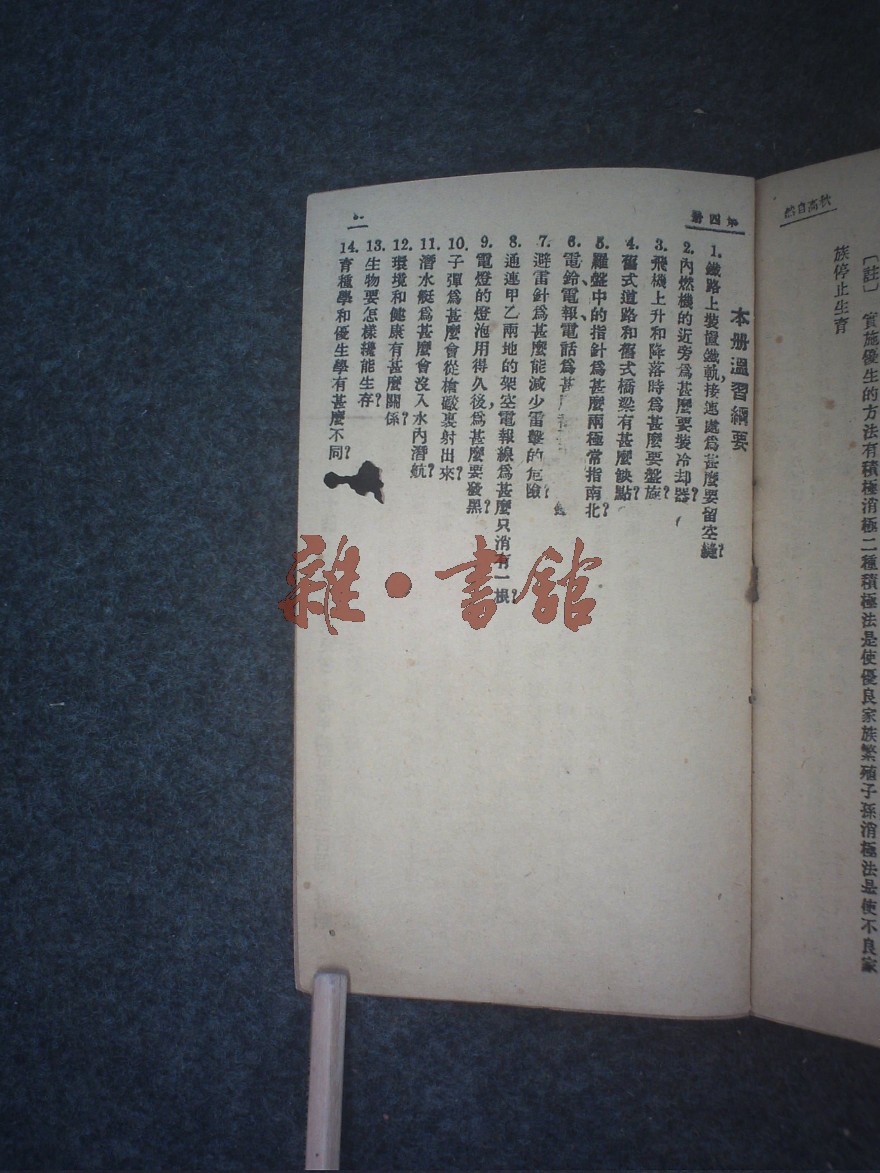 〔註〕 實施優生的方法有積極消極二種積極法是使優良家族繁殖子孫消極法是使不良家
族停止生育
第四冊
本册溫習綱要
1. 鐵路上裝置鐵軌,接連處爲甚麼要留空縫?
2. 內燃機的近旁爲甚麼要裝冷却器?
3. 飛機上升和降落時爲甚麼要盤旋?
4. 舊式道路和舊式橋梁有甚麼缺點?
5. 羅盤中的指針爲甚麼兩極常指南北?
6. 電鈴、電報、電話爲甚
7. 避雷針爲甚麼能減少雷擊的危險?
8. 通連甲乙兩地的架空電報線爲甚麼只消有一根?
9. 電燈的燈泡用得久後,爲甚麼要發黑?
10. 子彈爲甚麼會從槍殼裏射出來?
11. 潛水艇爲甚麼會沒入水內潛航?
12. 環境和健康有甚麼關係?
13. 生物要怎樣纔能生存?
14. 育種學和優生學有甚麼不同?
雜·書館